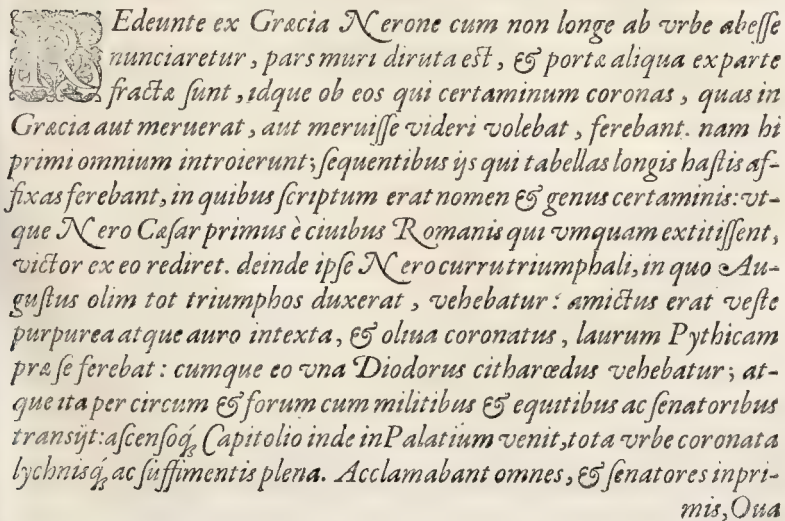 REdeunte ex Græcia Nerone cum non longe ab vrbe abeſſe
nunciaretur, pars muri diruta est, & portæ aliqua ex parte
fractæ ſunt, idque ob eos qui certaminum coronas, quas in
Græcia aut meruerat, aut meruiſſe videri volebat, ferebant. nam hi
primi omnium introierunt; ſequentibus ijs qui tabellas longis haſtis af-
fixas ferebant, in quibus ſcriptum erat nomen & genus certaminis: vt-
que Nero Cæſar primus è ciuibus Romanis qui vmquam extitiſſent,
victor ex eo rediret. deinde ipſe Nero curru triumphali, in quo Au-
guſtus olim tot triumphos duxerat, vehebatur: amictus erat veſte
purpurea atque auro intexta, & oliua coronatus, laurum Pythicam
præ ſe ferebat: cumque eo vna Diodorus citharœdus vehebatur; at-
que ita per circum & forum cum militibus & equitibus ac ſenatoribus
transijt: aſcenſoq́ꝫ Capitolio inde in Palatium venit, tota vrbe coronata
lychnisq́ꝫ ac ſuffimentis plena. Acclamabant omnes, & ſenatores inpri-
mis, Oua